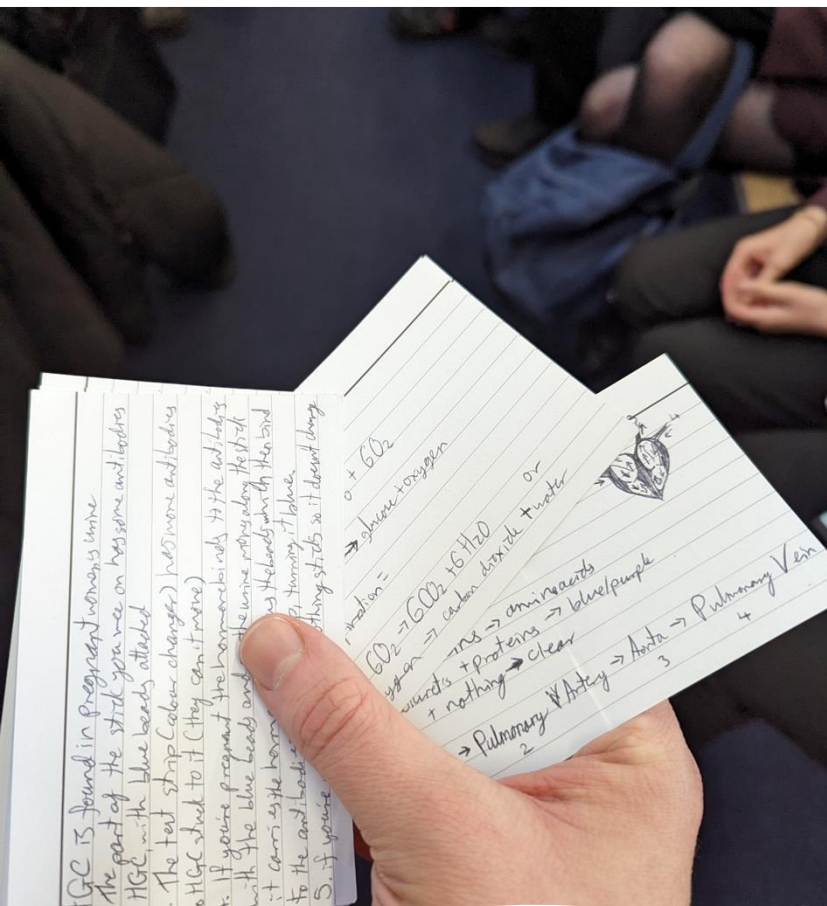 HGC is found in pregnant womens urine
The part of the stick you wee on has some antibodies
HGC, with blue beads attached
The test strip (colour changer) has more antibodies
HGC stuck to it (they can't move)
If you're pregnant the hormone binds to the antibodies
with the blue beads and the urine moving along the stick
it carries the
the beads which then bind
to the
turning it blue
5. if you're
sticks so it doesn't change
+ 6O2
→ glucose + oxygen
6O2 → 6CO2 + 6H2O or
→ carbon dioxide + water
→ amino acids
+ proteins → blue/purple
+ nothing → clear
→ Pulmonary Artery → Aorta → Pulmonary Vein
2 3 4